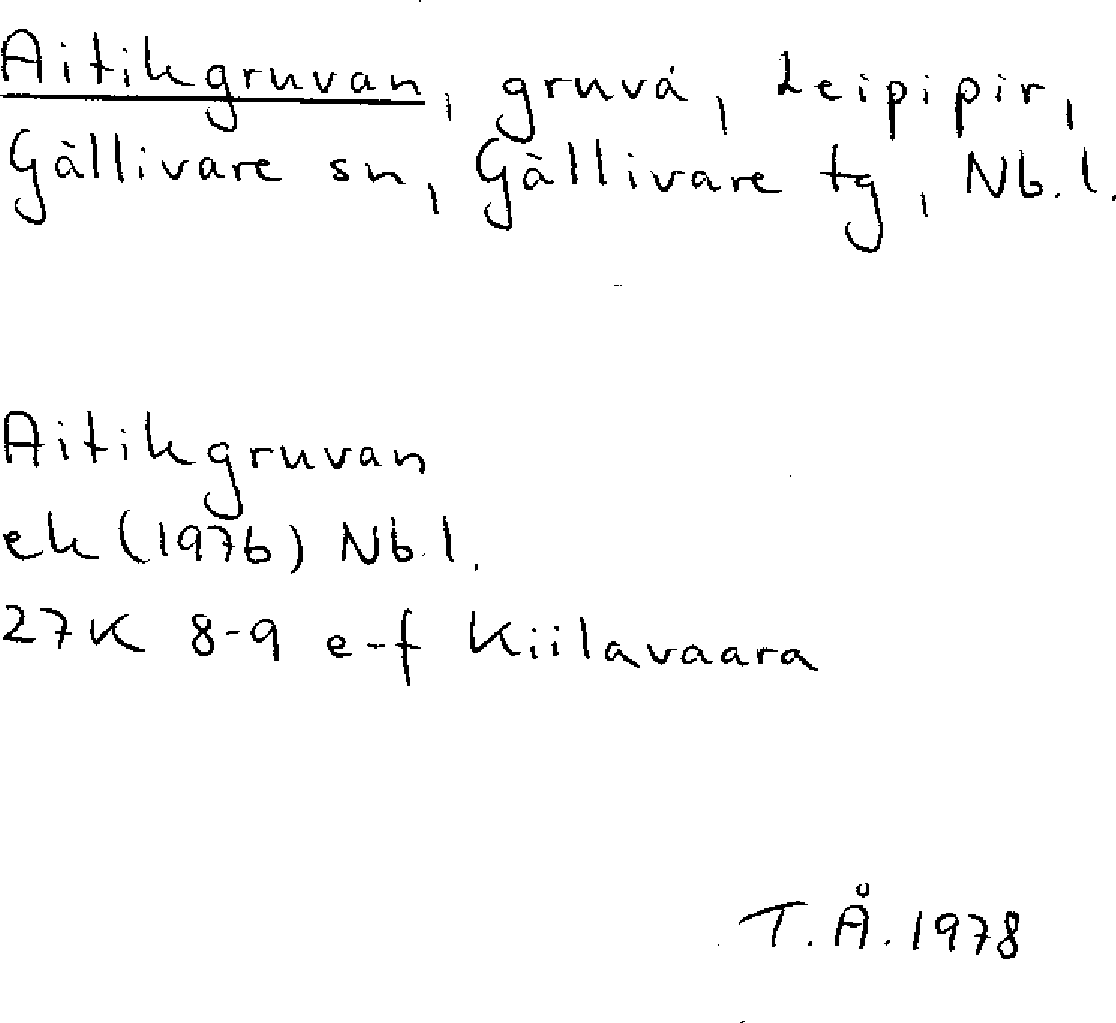 Aitikgruvan, gruva, Leipipir,
Gällivare sn, Gällivare tg, Nb. l.
Aitikgruvan
ek (1976) Nb. l.
27K 8-9 e-f Kiilavaara
T. Å. 1978